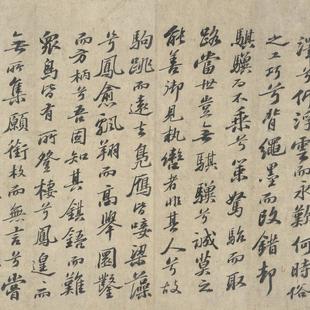 兮仰浮雲而永歎何時俗
之工巧兮背繩墨而改錯却
騏驥而不乘兮策駑駘而取
路當世豈無騏驥兮誠莫之
能善御見執轡者非其人兮故
駒跳而遠去鳧雁皆唼梁藻
兮鳳愈飄翔而高舉圜鑿
而方枘兮吾固知其鉏鋙而難
眾鳥皆有所登棲兮鳳遑遑而
無所集願銜枚而無言兮嘗